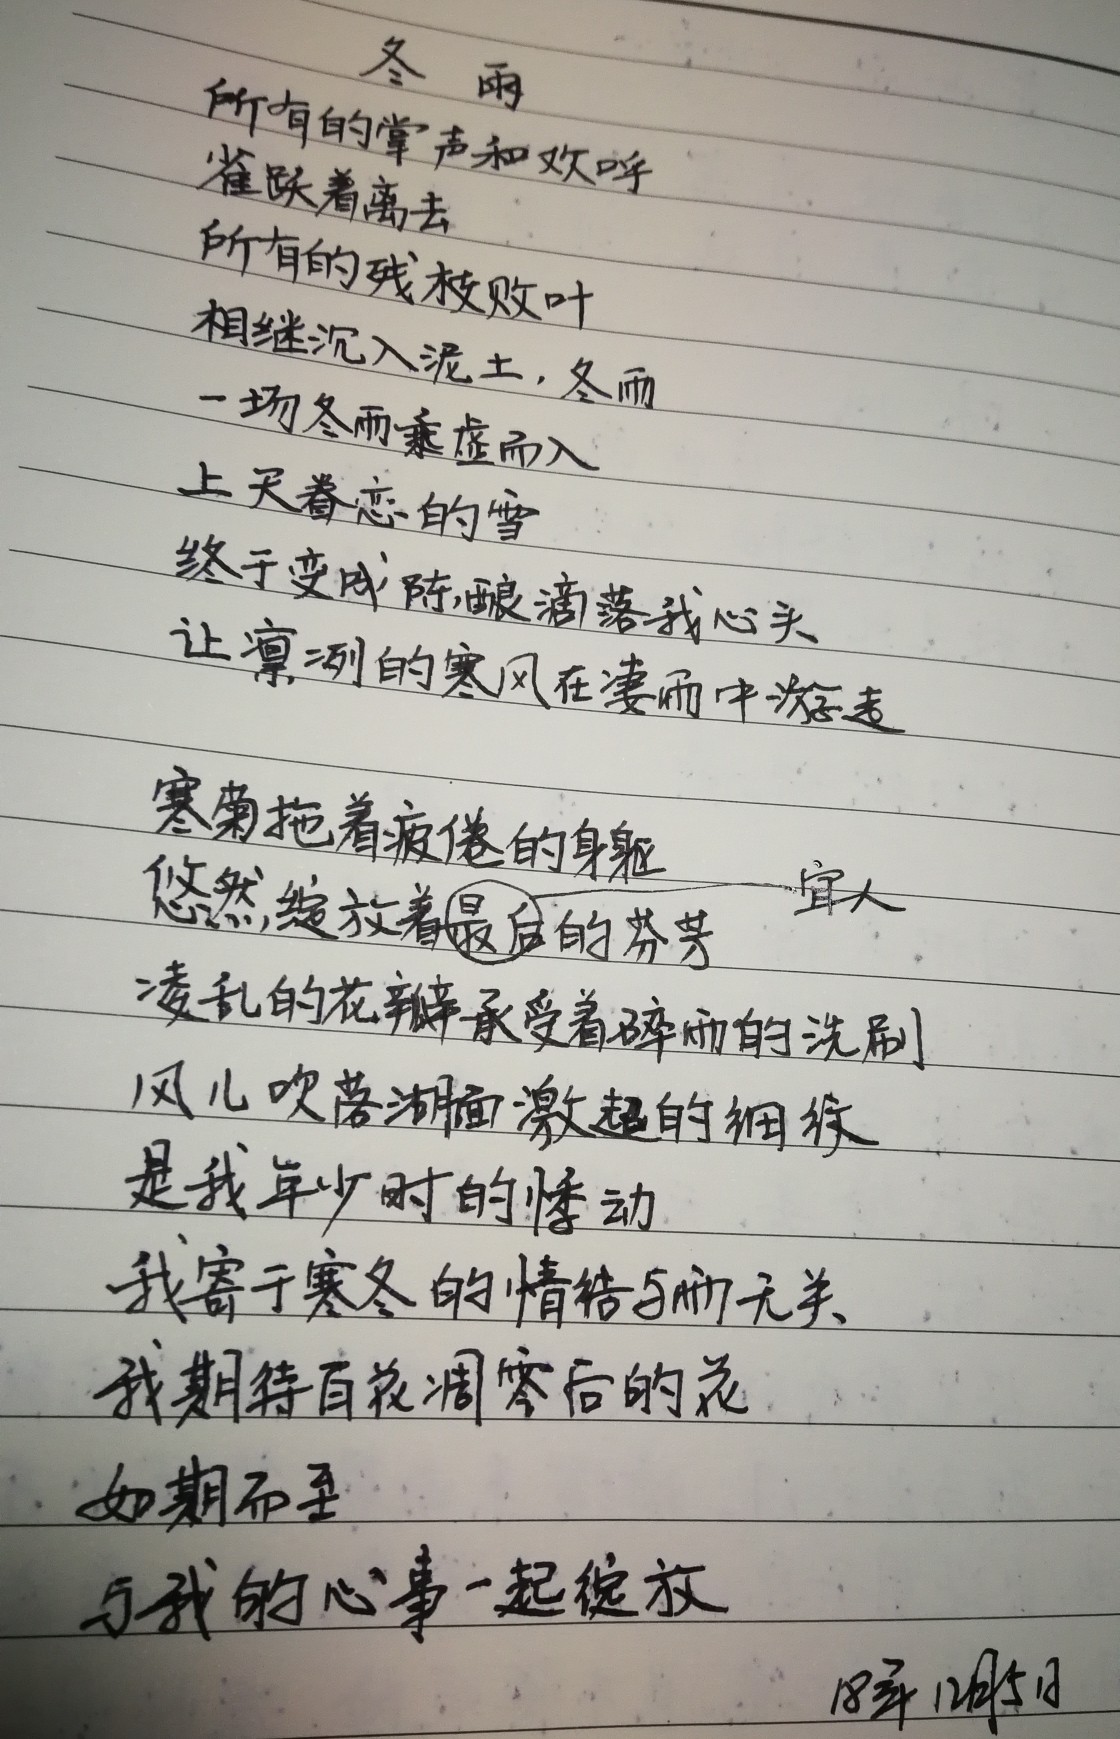 冬雨
所有的掌声和欢呼
雀跃着离去
所有的残枝败叶
相继沉入泥土,冬雨
一场冬雨乘虚而入
上天眷恋的雪
终于变成陈酿滴落我心头
让凛冽的寒风在凄雨中游走
寒菊拖着疲倦的身躯
悠然绽放着最后的芬芳
宜人
凌乱的花瓣承受着碎雨的洗刷
风儿吹落湖面激起的细纹
是我年少时的悸动
我寄于寒冬的情结与雨无关
我期待百花凋零后的花
如期而至
与我的心事一起绽放
18年12月5日